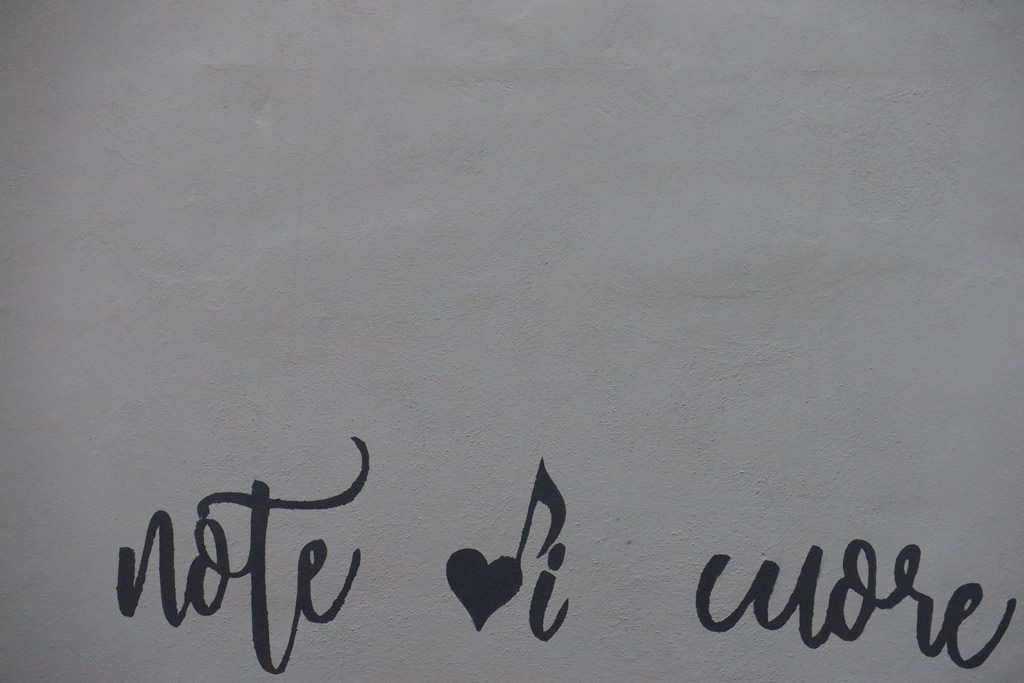 note di cuore